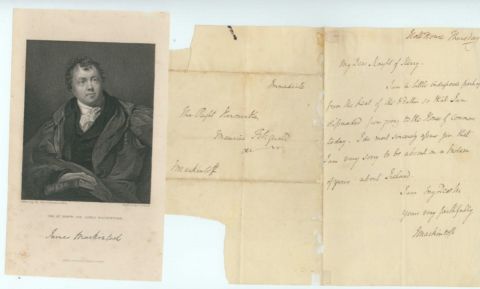 THE RT. HONBLE. SIR JAMES MACKINTOSH.
James Mackintosh
Immediate
The Right Honourable
Maurice Fitzgerald
&c
JMackintosh
Holl House Thursday
My Dear Knight of Kerry
I am a little indisposed partly
from the heat of the Weather so that I am
dissuaded from going to the House of Commons
today. I can most sincerely assure you that
I am very sorry to be absent on a Motion
of yours about Ireland
I am my Dear Sir
yours very faithfully
JMackintosh